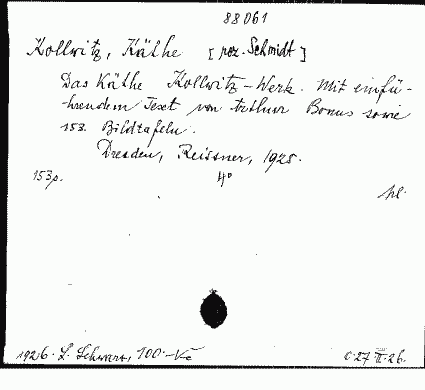 88061
Kollwitz, Käthe [roz. Schmidt]
Das Käthe Kollwitz-Werk. Mit einfü-
hrendem Text von Arthur Bonus sowie
153 Bildtafeln.
Dresden, Reissner, 1925.
153 p. 4°
pl.
1926. L. Schwarz, 100.- Kč C 27 II 26.